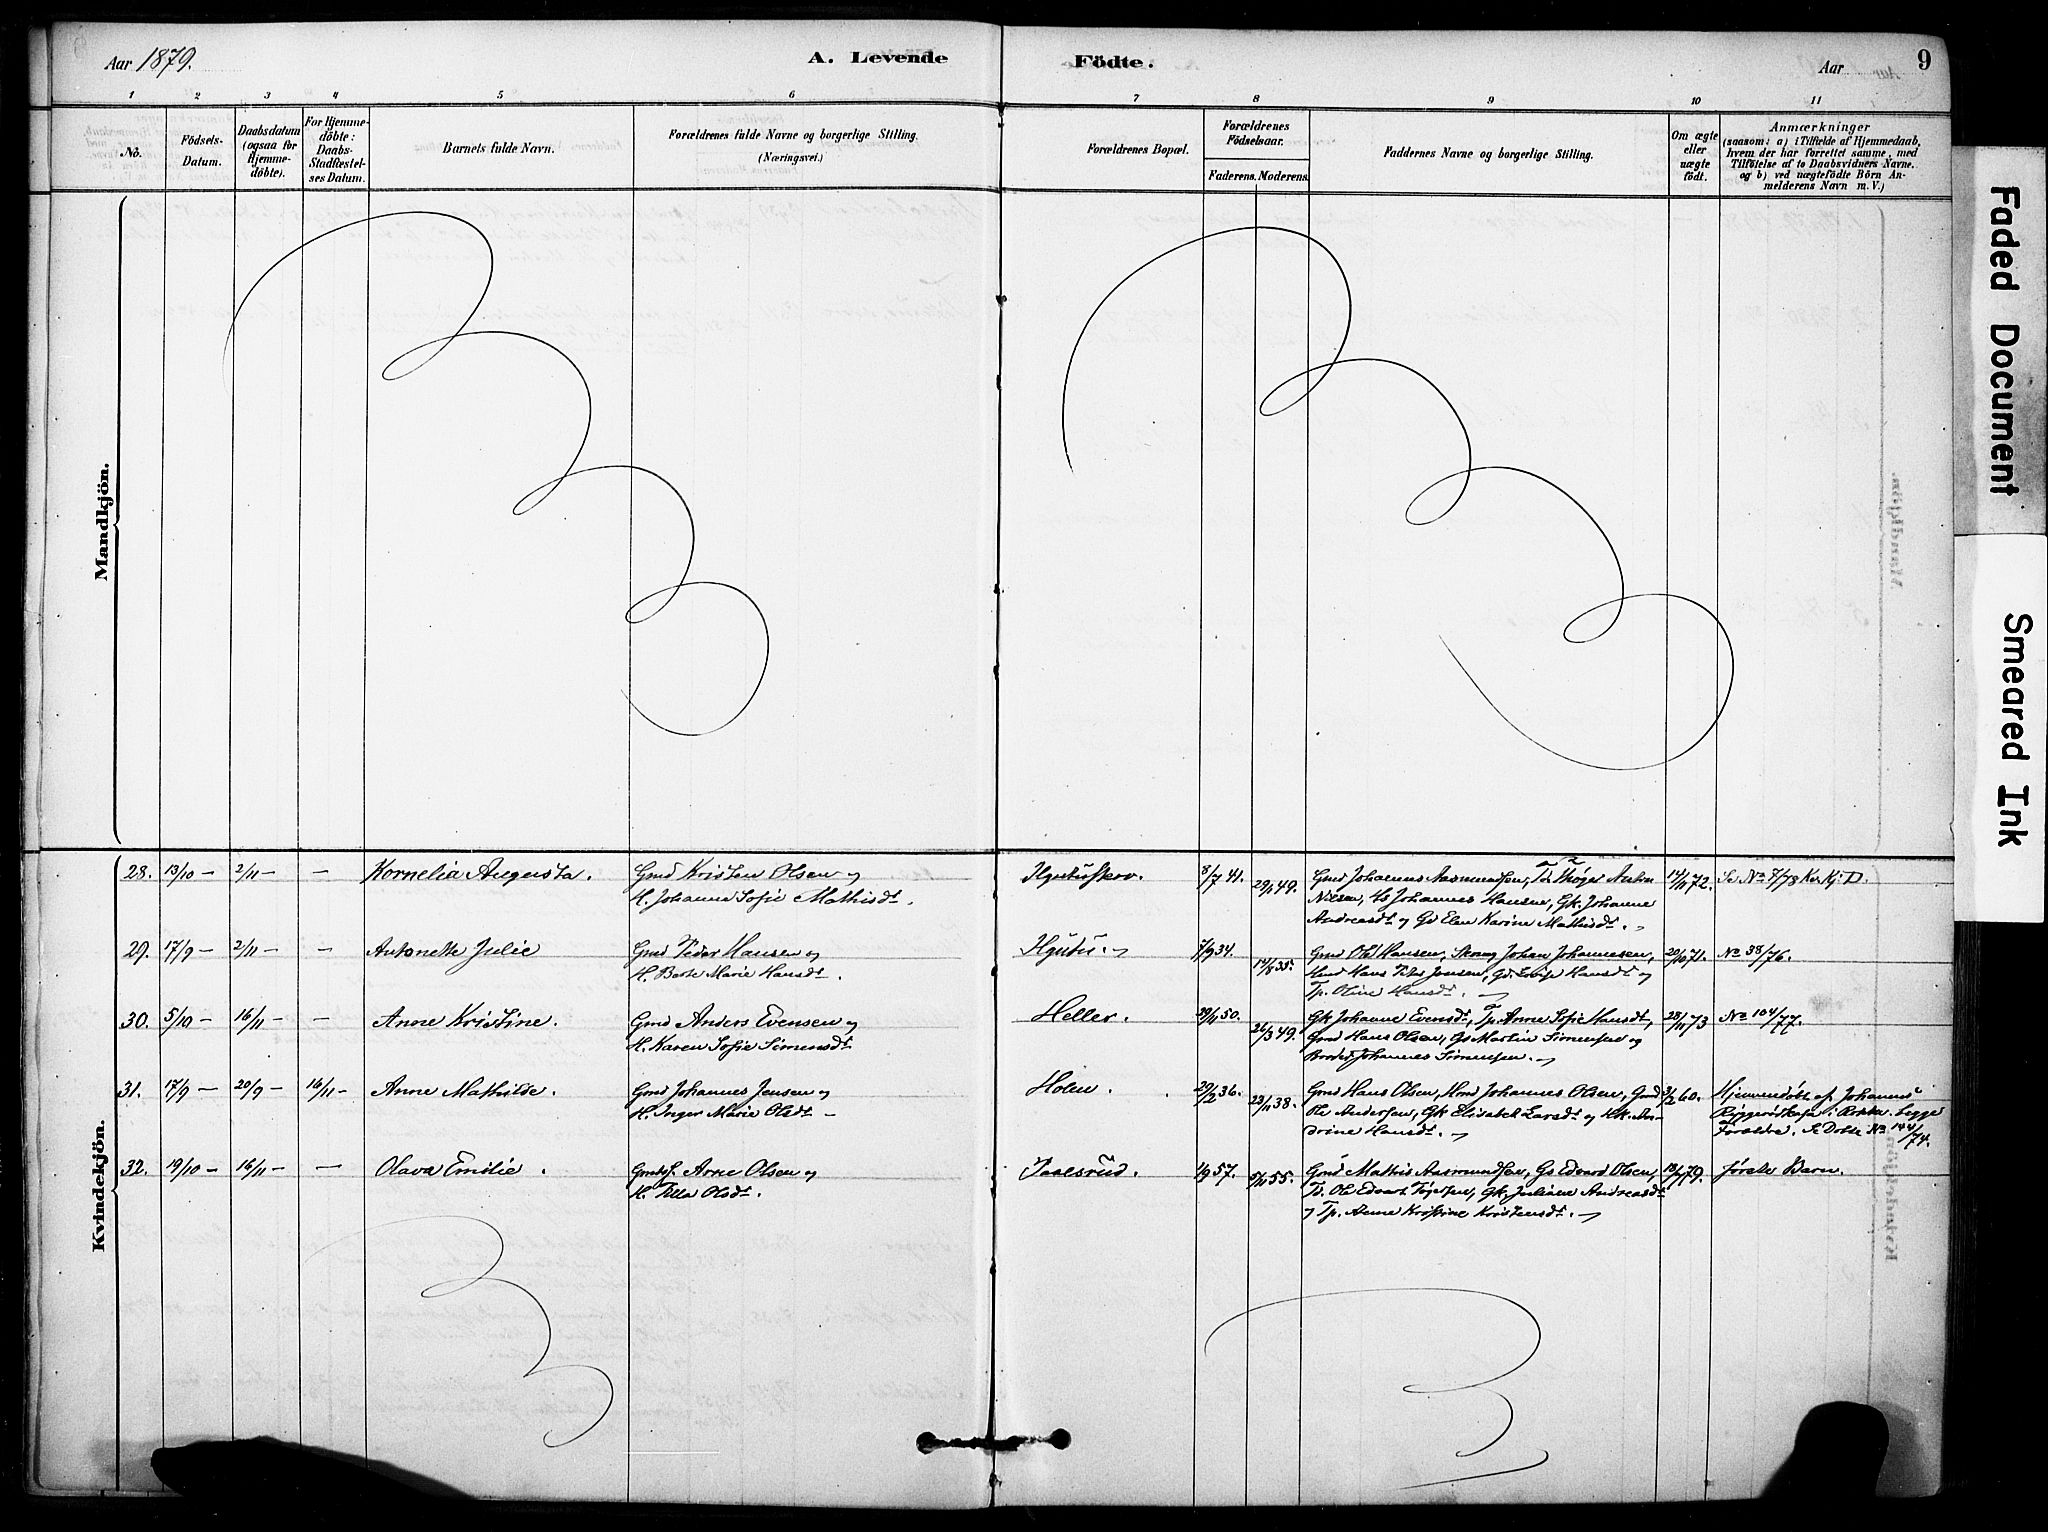 Aar 1879.
A. Levende Födte.
Aar
9
1 2 3 4 5 6 7 8 9 10 11
No.
Födsels-
Datum.
Daabsdatum
(ogsaa for
Hjemme-
döbte).
For Hjemme-
döbte:
Daabs-
Stadfestel-
ses Datum.
Barnets fulde Navn.
Forældrenes fulde Navne og borgerlige Stilling.
(Næringsvei.)
Forældrenes Bopæl.
Forældrenes
Födselsaar.
Faderens. Moderens.
Faddernes Navne og borgerlige Stilling.
Om ægte
eller
uægte
födt.
Anmærkninger
(saasom: a) i Tilfælde af Hjemmedaab,
hvem der har forrettet samme, med
Tilföielse af to Daabsvidners Navne.
og b) ved uægtefödte Börn An-
melderens Navn m. V.)
Mandkjön.
Kvindekjön.
28. 13/10 — 2/11 — — Kornelia Augusta. Gmd Kristen Olsen og
H. Johanne Sofie Mathisdt.
8/7 41. 29/1 49. Gmd Johannes Aasmundsen, Anton
Nilsen, Johannes Hansen, Gk. Johanne
Andreasdt og Gs Elen Karine Mathisdt.
14/11 72. Se No 7/78 D.
29. 17/9 — 2/11 — — Antonette Julie Gmd Peder Hansen og
H. Berte Marie Hansdt.
7/9 34. 14/8 35. Gmd Ole Hansen, Johan Johannesen,
Hans Jensen, Hansdt og
Tp. Oline Hansdt.
20/10 71. No 38/76.
30. 5/10 — 16/11 — — Anne Kristine. Gmd Anders Evensen og
H. Karen Sofie Simensdt
Heller. 29/11 50. 26/3 49. Gk Johanne Evensdt, Tp. Anne Sofie Hansdt,
Gmd Hans Olsen, Gs Martin Simensen og
Johannes Simensen.
28/11 73 No 104/77.
31. 17/9 — 20/9 — 16/11 — Anne Mathilde. Gmd Johannes Jensen og
H. Inger Marie Olsdt
Holm. 29/2 36. 23/11 38. Gmd Hans Olsen, Johannes Olsen, Gmd
Ole Andersen, Gk Elisabet Larsdt og An-
drine Hansdt.
3/2 60. Hjemmedöbt af Johannes
i Rokke. Begge
Foreldre. Se No 144/74.
32. 19/10 — 16/11 — — Olava Emilie. Arne Olsen og
H. Olsdt.
1/9 57. 5/11 55. Gmd Mathis Aasmundsen, Gs Edvard Olsen,
Ole Edvart, Gk. Juliane Andreasdt
og Tp. Anne Kristine Kristensdt.
18/7 79. Förste Barn.
Faded Document
Smeared Ink